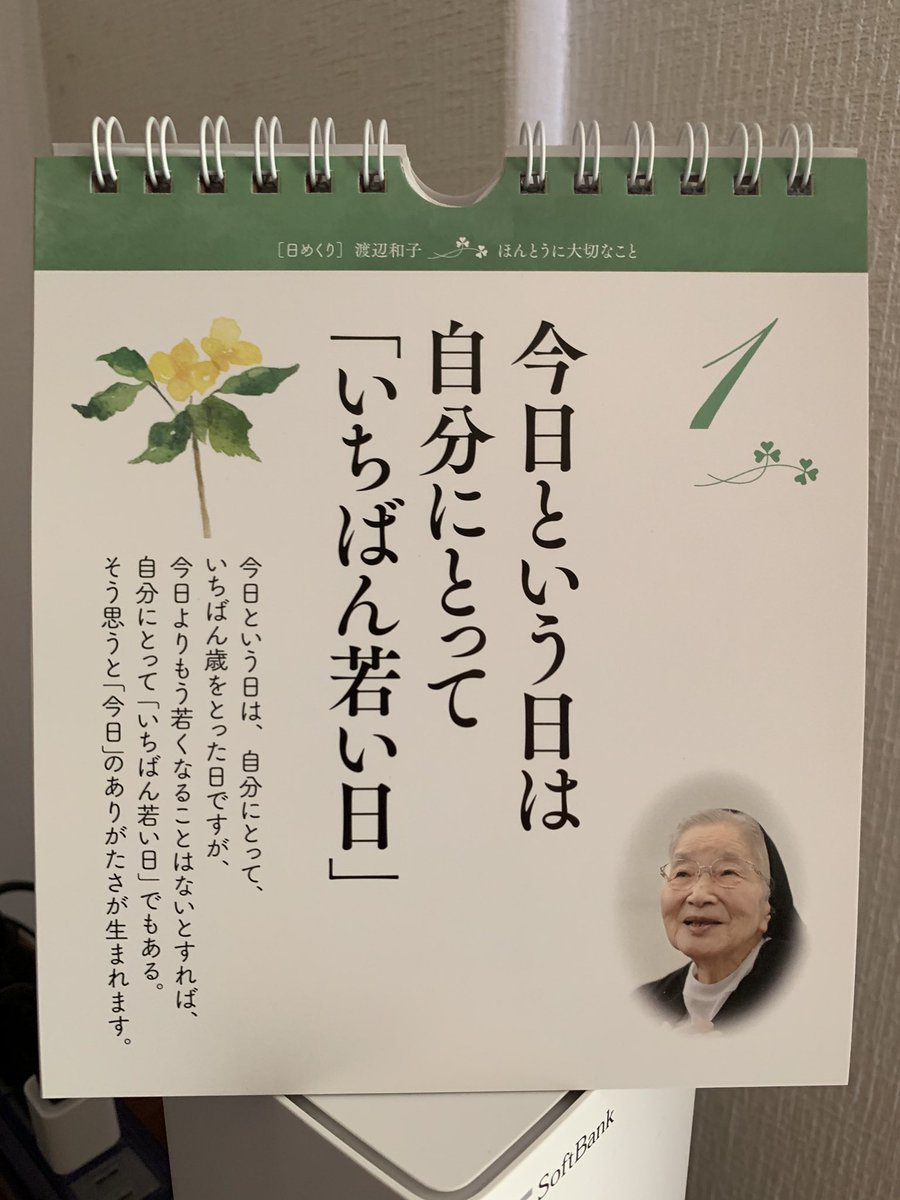 [日めくり] 渡辺和子 ほんとうに大切なこと
1
今日という日は
自分にとって
「いちばん若い日」
今日という日は、自分にとって、
いちばん歳をとった日ですが、
今日よりもう若くなることはないとすれば、
自分にとって「いちばん若い日」でもある。
そう思うと「今日」のありがたさが生まれます。
SoftBank